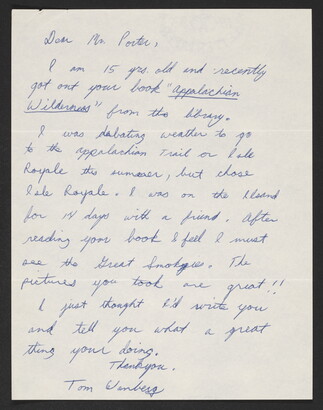 Dear Mr. Porter,
I am 15 yrs. old and recently
got out your book "Appalachian
Wilderness" from the library.
I was debating weather to go
to the appalachian Trail or Isle
Royale the summer, but chose
Isle Royale. I was on the Island
for 14 days with a friend. After
reading your book I feel I must
see the Great Smokies. The
pictures you took are great!!
I just thought I'd write you
and tell you what a great
thing your doing.
Thankyou.
Tom